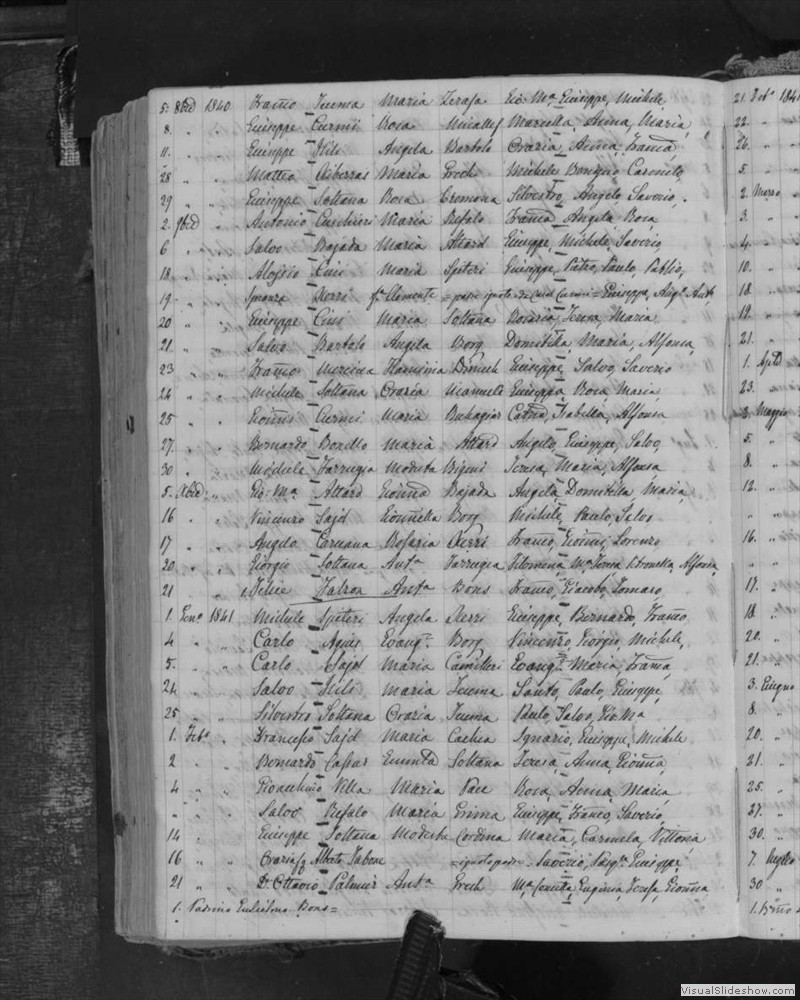 5. 8bre 1840 Franco Zuema Maria Teresa Gio: Ma Giuseppe, Michele,
8. " " Giuseppe Curmi Rosa Micallef Marcella, Anna, Maria,
11. " " Giuseppe Angela Bartolo Grazia, Anna, Franca,
28 " " Matteo Ciberras Maria Grech Michele Benigno Carmelo,
29 " " Giuseppe Soltana Rosa Cremona Silvestro, Angelo Saverio,
2. 9bre " Antonio Cuschieri Maria Refalo Franca Angela Rosa,
6 " " Salvo Bajada Maria Attard Giuseppe, Michele, Saverio
18. " " Aloisio Cini Maria Spiteri Giuseppe, Pietro, Paulo, Publio,
19. " " Xerri Clemente = padre ignoto Giuseppe, Ang. Ant
20 " " Giuseppe Cini Maria Soltana Rosaria, Teresa, Maria,
21 " " Salvo Bartolo Angela Borg Domitilla, Maria, Alfonsa,
23 " " Franco Mercieca Flaminia Giuseppe, Salvo, Saverio
24 " " Michele Soltana Grazia Manuele Giuseppa, Rosa, Maria,
25 " " Gioanni Curmi Maria Buhagiar Isabella, Alfonsa
27. " " Bernardo Bonello Maria Attard Angelo, Giuseppe, Salvo,
30 " " Michele Farrugia Modesta Bigeni Teresa, Maria, Alfonsa
5. Xbre " Gio: Ma Attard Gioanna Bajada Angela, Domitilla, Maria,
16 " " Vincenzo Sajd Gioannella Borg Michele, Paulo, Salvo
17 " " Angelo Caruana Rosaria Xerri Franco, Gioanni, Lorenzo
20 " " Giorgio Soltana Anta Farrugia Filomena, Ma Teresa Petronella, Alfonsa,
21 " 1. Felice Falzon Anta Bons Franco, Giacobo, Tomaso,
1. Geno 1841 Michele Spiteri Angela Xerri Giuseppe, Bernardo, Franco
4 " " Carlo Agius Evang. Borg Vincenzo, Giorgio, Michele,
5. " " Carlo Sajd Maria Camilleri Evang. Maria, Franca,
24 " " Salvo Maria Zuema Santo, Paulo, Giuseppe,
25 " " Silvestro Soltana Grazia Zuema Paulo, Salvo, Gio Ma
1. Febo " Francesco Sajd Maria Cachia Ignazio, Giuseppe, Michele
2 " Bernardo Cassar Soltana Teresa, Anna, Gioanna,
4 " " Gioachino Villa Maria Pace Rosa, Anna, Maria
" " " Salvo Refalo Maria Grima Giuseppe, Franco, Saverio,
14 " Giuseppe Soltana Modesta Cordina Maria, Carmela, Vittoria
16 " " Grazia Alberto Tabone = ignoto padre = Saverio, Giuseppe,
21 " " Dr Ottavio Palmier Anta Grech Ma Eugenia, Teresa, Gioanna
1. Padrino Bons =
21. Febo 1841
22. "
26. "
5. "
2. Marzo
3. "
4. "
10. "
18. "
19. "
21. "
1. Aple
23. "
3. Maggio
5. "
8. "
12. "
" "
16. "
" "
17. "
18. "
20. "
21. "
3. Giugno
8. "
20. "
21. "
25. "
27. "
30. "
7. Luglio
30 "
1.
VisualSlideshow.com